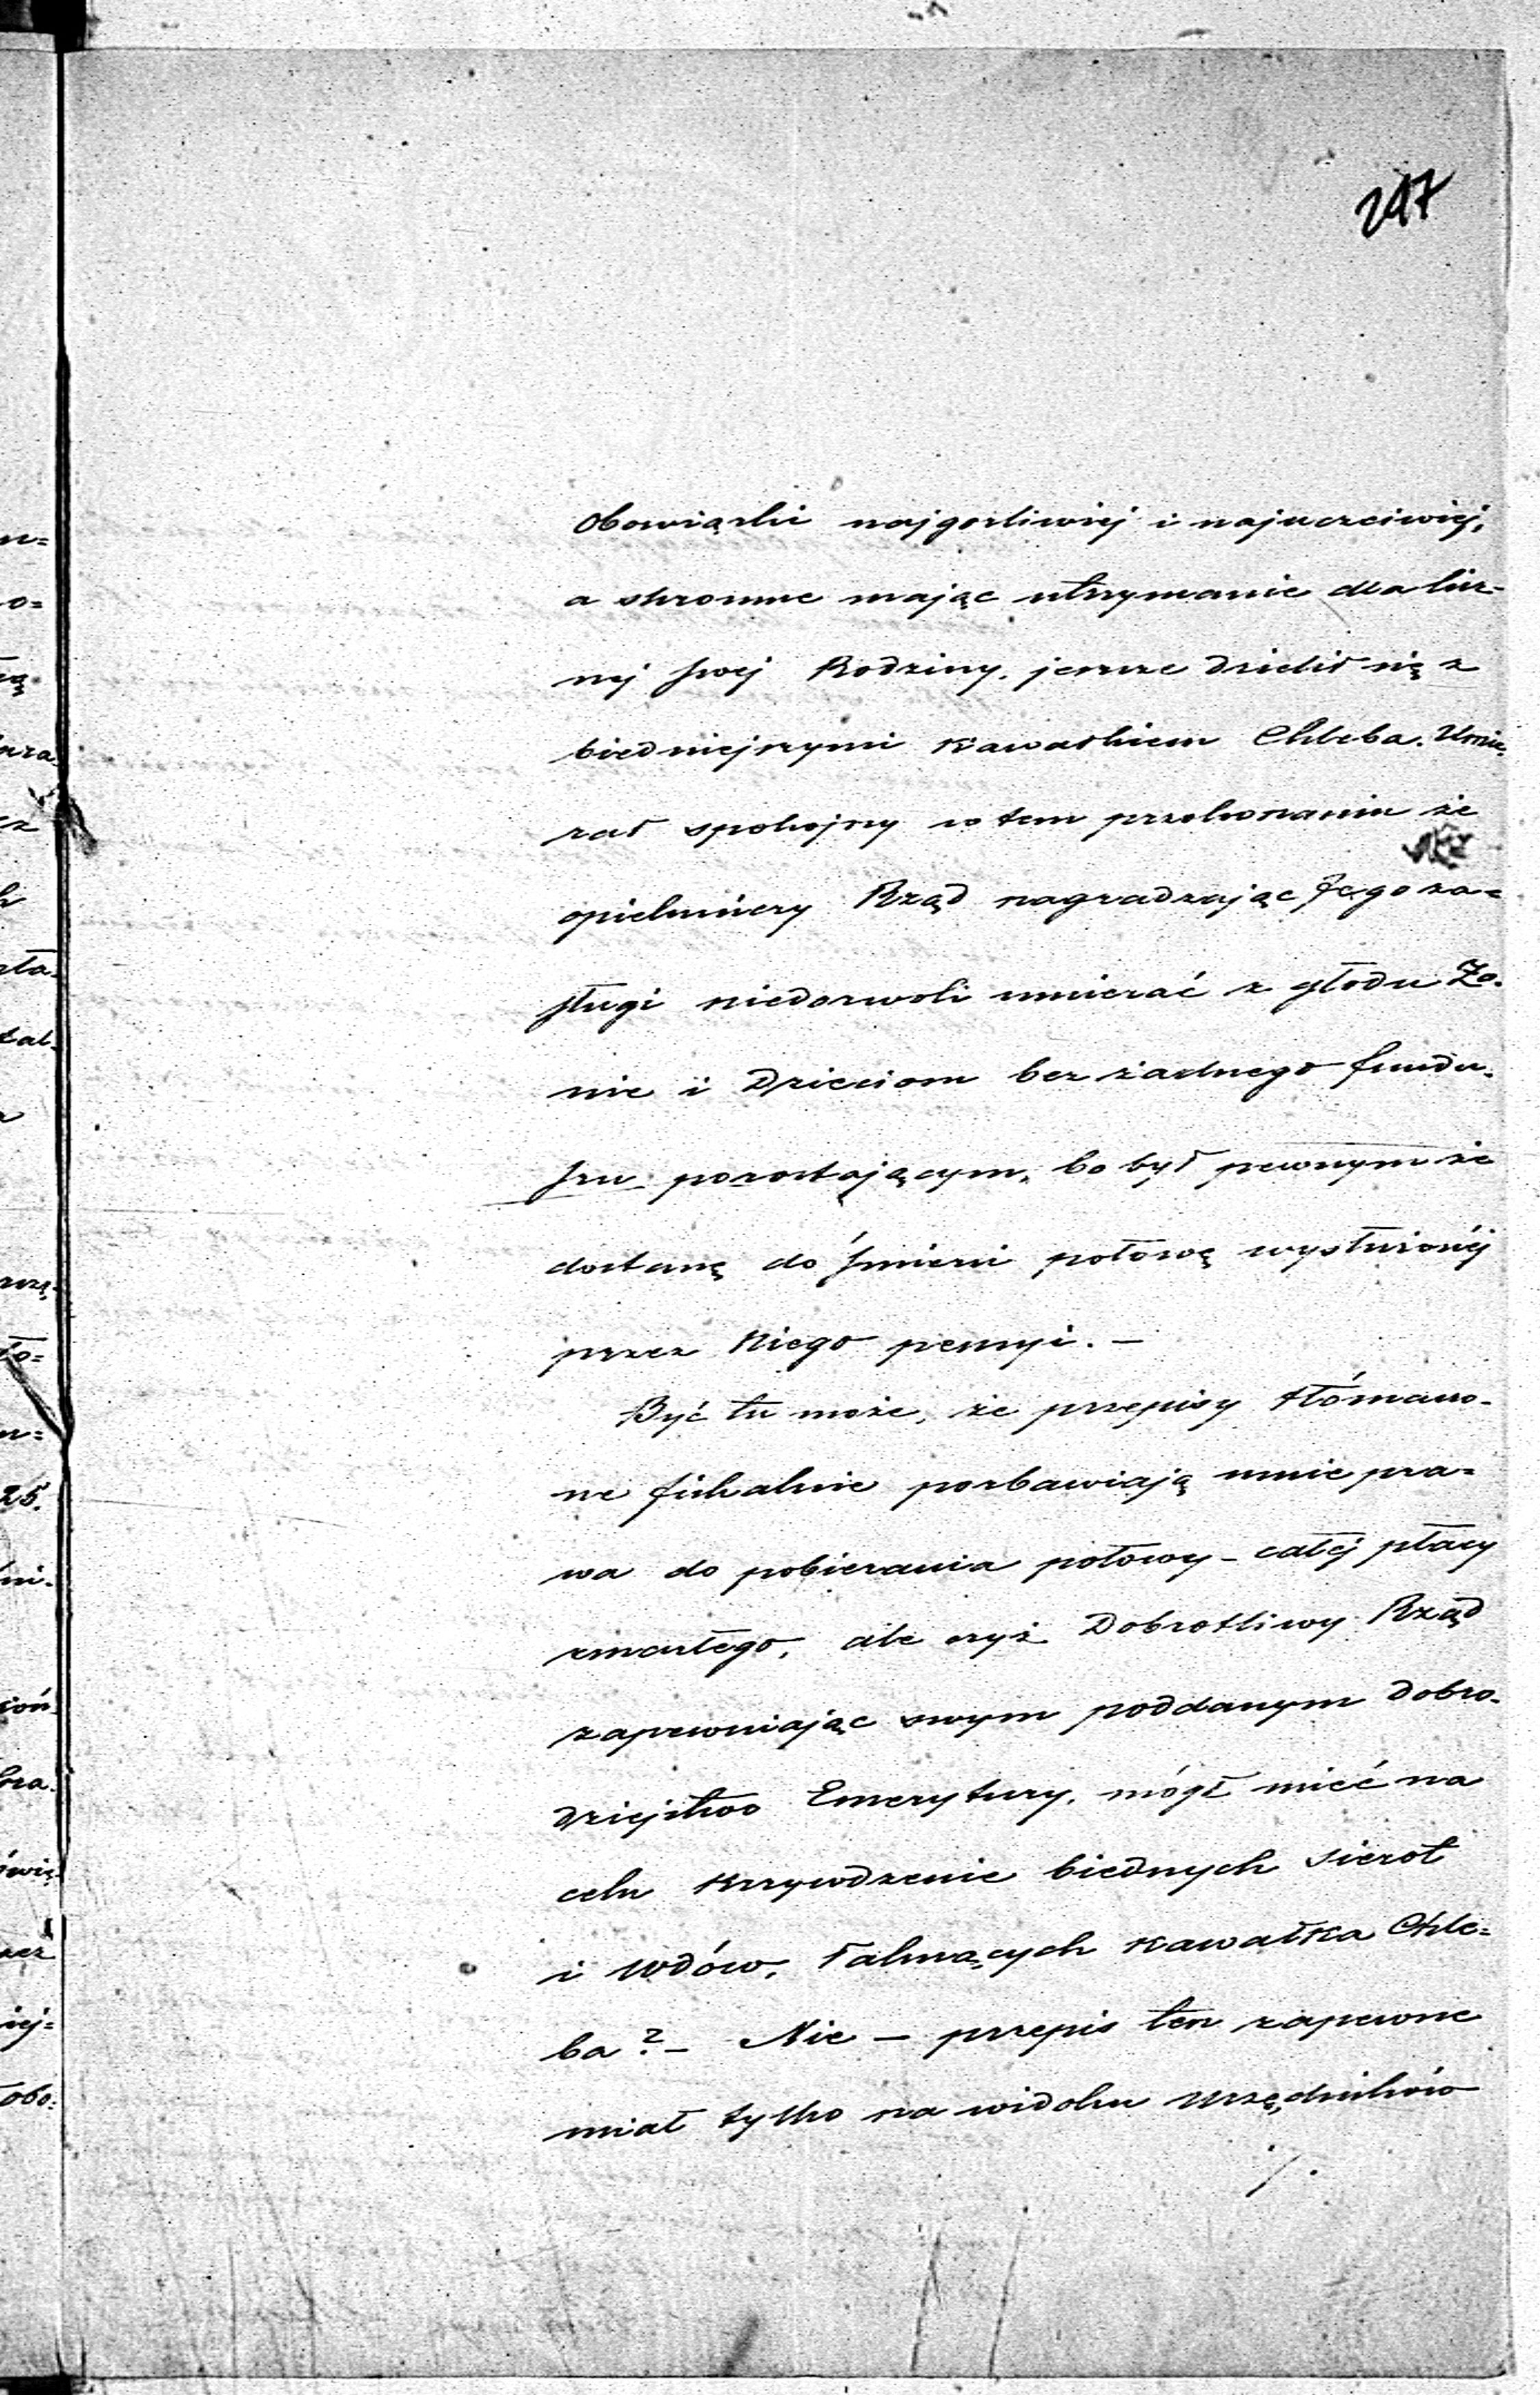 247
Obowiązki najgorliwiej i najuczciwiej,
a skromne mając utrzymanie dla licz-
nej swej Rodziny, jeszcze dzielił się z
biedniejszymi kawałkiem Chleba. Umie-
rał spokojny w tem przekonaniu że
opiekuńczy Rząd nagradzając Jego za=
sługi niedozwoli umierać z głodu Żo-
nie i Dzieciom bez żadnego fundu-
szu pozostającym, bo był pewnym że
dostanę do śmierci połowę wysłużonéj
przez Niego pensyi. —
Być tu może, że przepisy tłómaczo-
ne fiskalnie pozbawiają mnie pra=
wa do pobierania połowy - całéj płacy
zmarłego, ale czyż Dobrotliwy Rząd
zapewniając swym poddanym dobro-
dziejstwo Emerytury, mógł mieć na
celu Krzywdzenie biednych Sierot
i Wdów, łaknących kawałka Chle=
ba? — Nie — przepis ten zapewne
miał tylko na widoku Urzędników
./.
n=
o=
25.
ła-
zał-
ło=
ni-
bra-
iej=
obo=